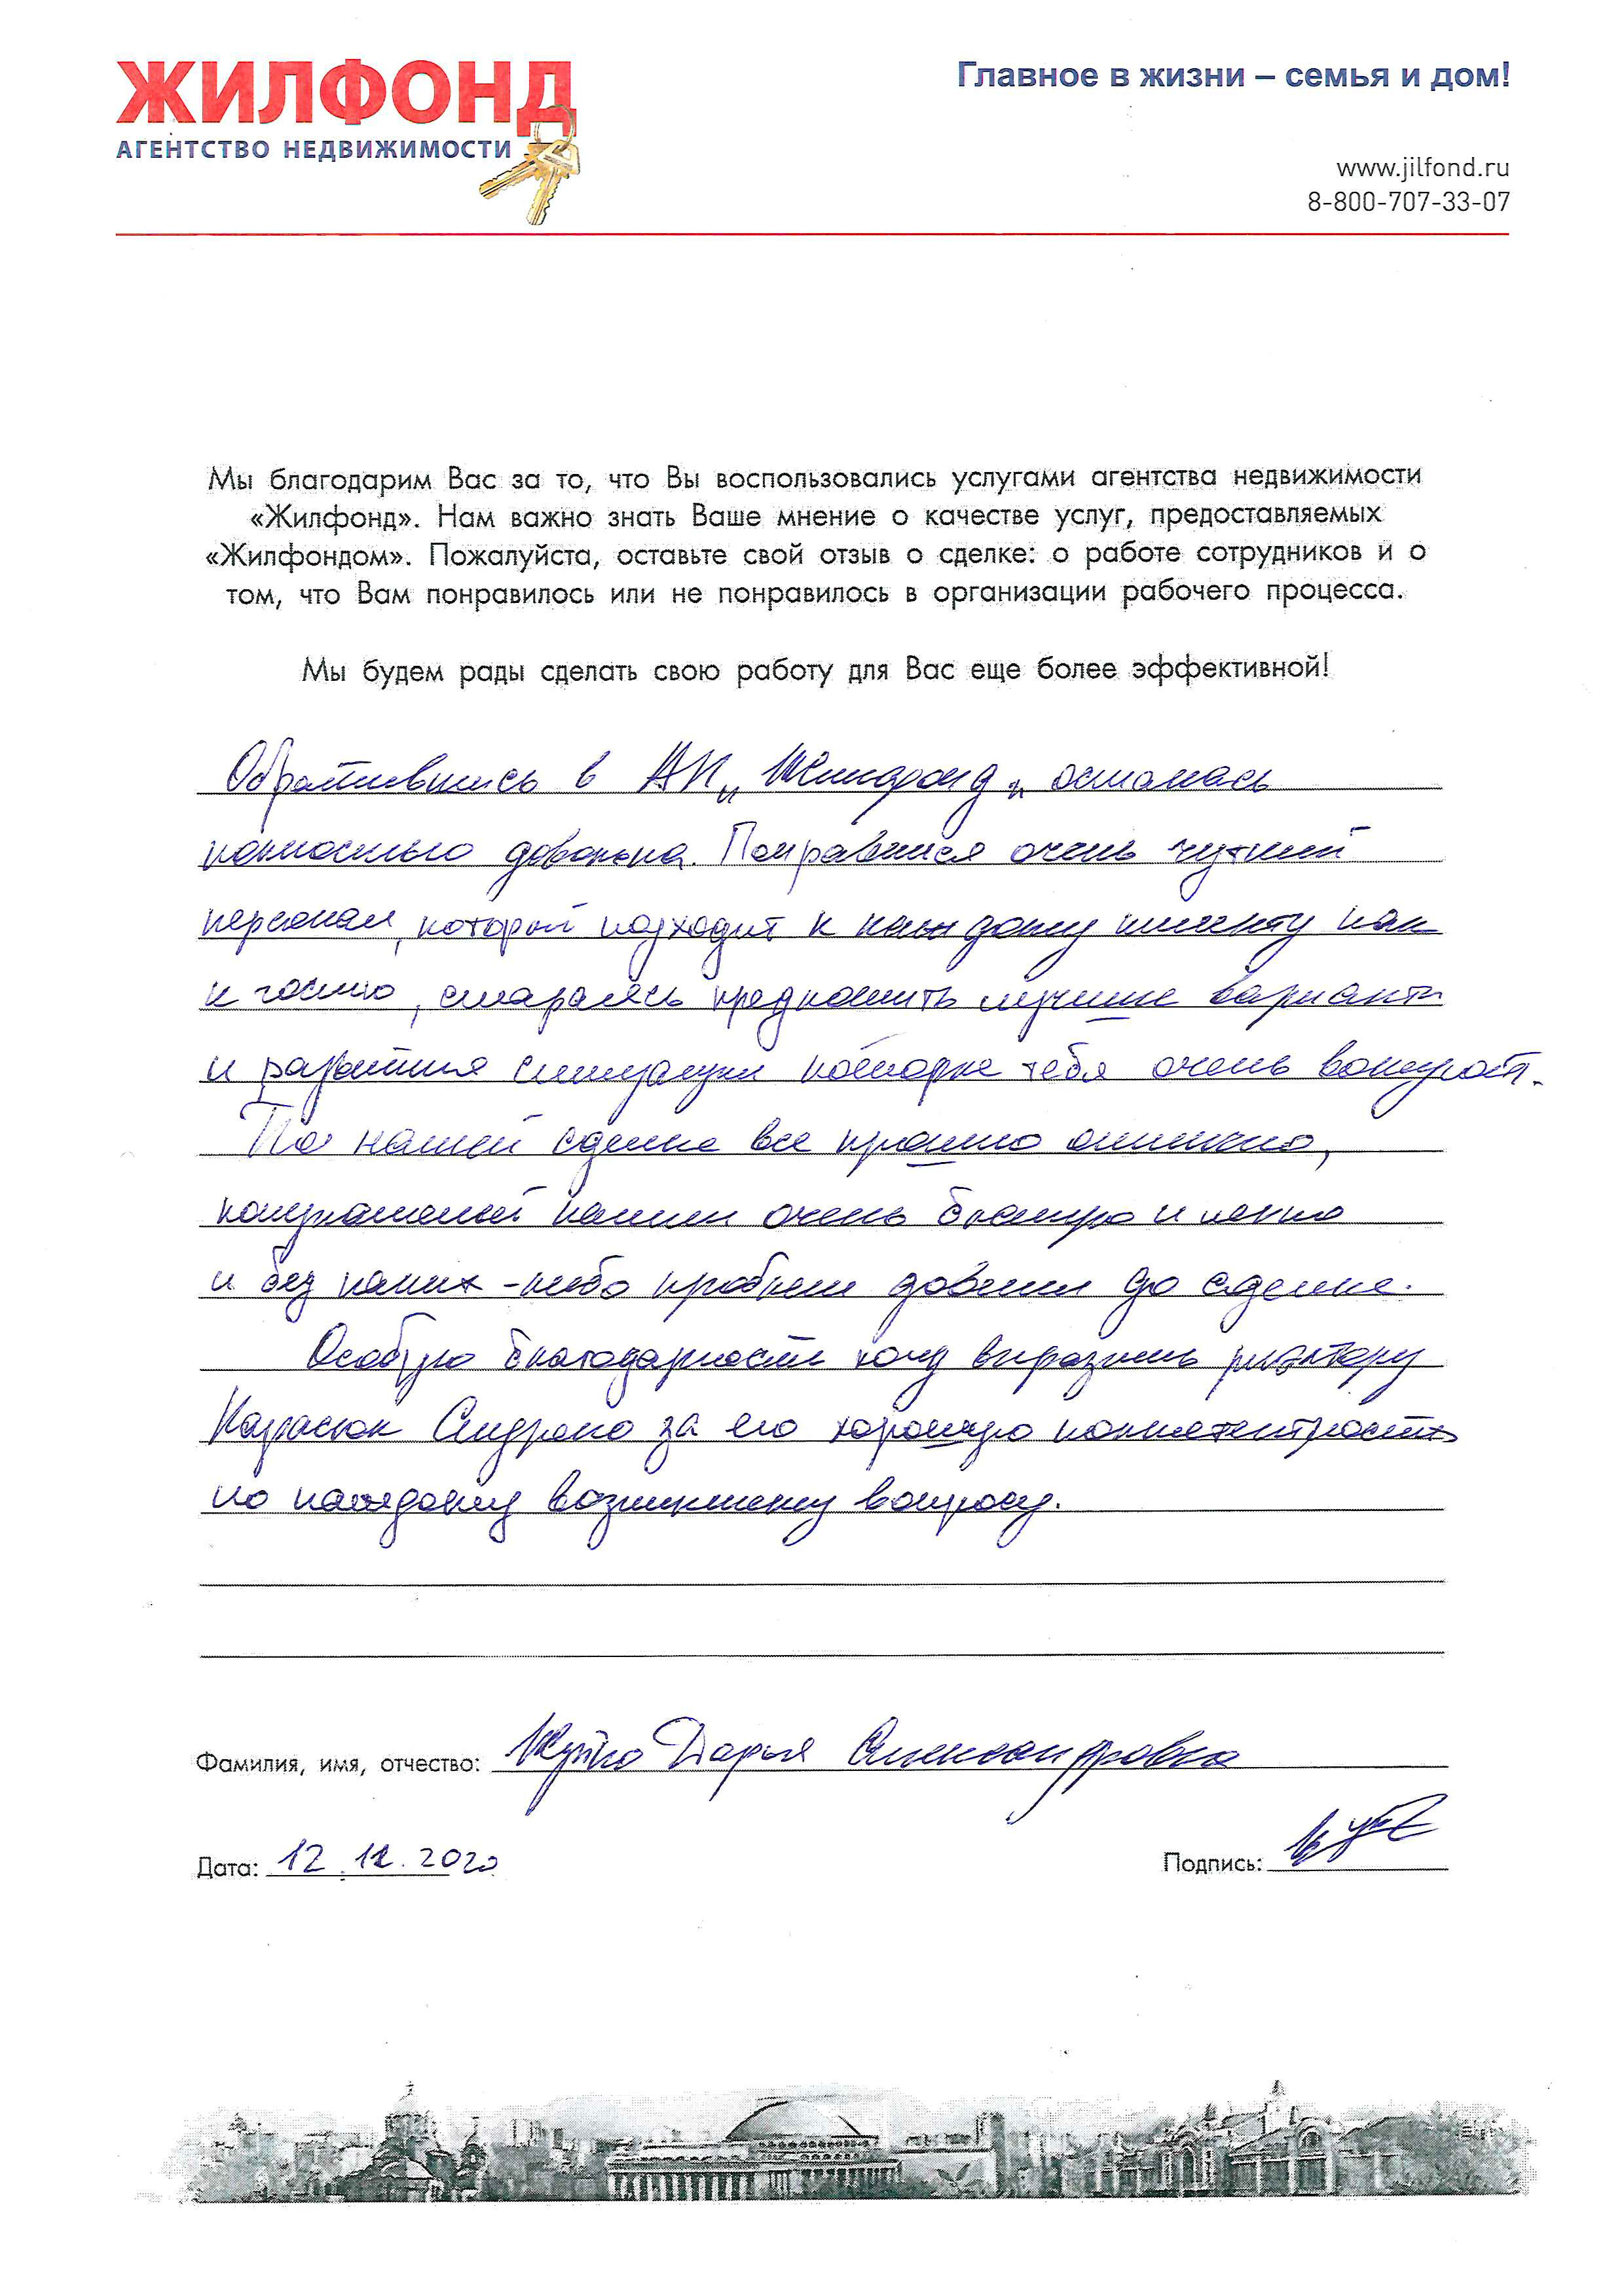 ЖИЛФОНД
АГЕНТСТВО НЕДВИЖИМОСТИ
Главное в жизни – семья и дом!
www.jilfond.ru
8-800-707-33-07
Мы благодарим Вас за то, что Вы воспользовались услугами агентства недвижимости
«Жилфонд». Нам важно знать Ваше мнение о качестве услуг, предоставляемых
«Жилфондом». Пожалуйста, оставьте свой отзыв о сделке: о работе сотрудников и о
том, что Вам понравилось или не понравилось в организации рабочего процесса.
Мы будем рады сделать свою работу для Вас еще более эффективной!
Обратившись в АН „Жилфонд„ осталась
полностью довольна. Понравился очень чуткий
персонал, который подходит к каждому клиенту как
к гостю, стараясь предложить лучшие варианты
и ситуации которые тебя очень
По нашей сделке все прошло отлично,
покупателей нашли очень быстро и легко
и без каких-либо проблем довели до сделке.
Особую благодарность хочу выразить риэлтору
Карасюк Андрею за его хорошую
по каждому возникшему вопросу.
Фамилия, имя, отчество: Дарья Александровна
Дата: 12. 2020
Подпись: